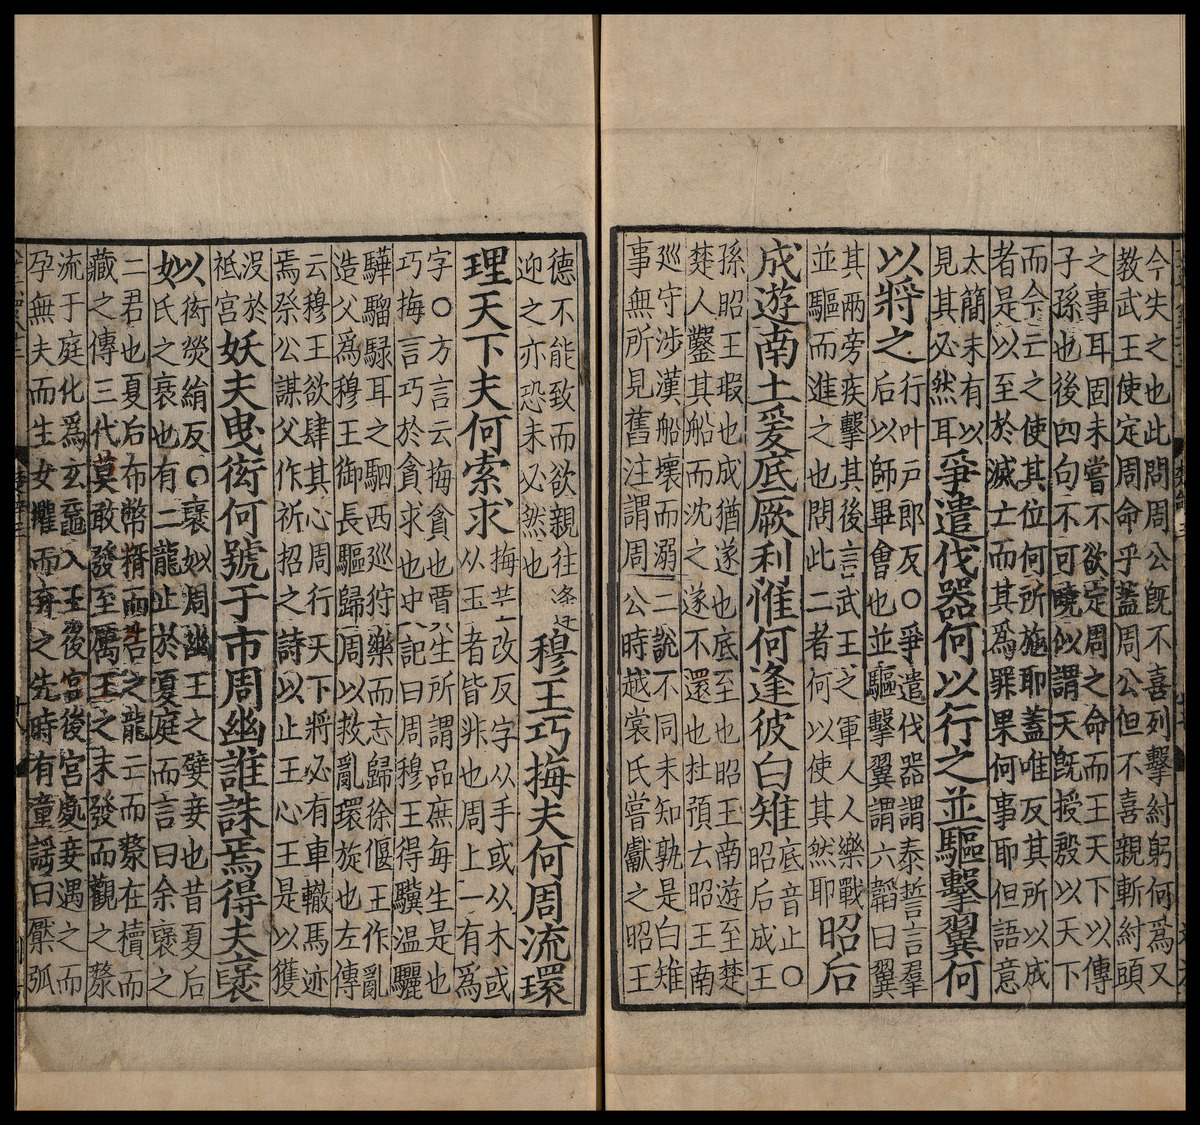 今失之也此問周公旣不喜列擊紂躬何爲又
教武王使定周命乎蓋周公但不喜親斬紂頭
之事耳固未嘗不欲定周之命而王天下以傳
子孫也後四句不可曉似謂天旣授殷以天下
而今亡之使其位何所施耶蓋唯反其所以成
者是以至於滅亡而其爲罪果何事耶但語意
太簡未有以
見其必然耳爭遣伐器何以行之並驅擊翼何
以將之行叶戸郎反〇爭遣伐器謂泰誓言羣
后以師畢會也並驅擊翼謂六韜曰翼
其兩旁疾擊其後言武王之軍人人樂戰
並驅而進之也問此二者何以使其然耶昭后
成遊南土爰底厥利惟何逢彼白雉底音止〇
昭后成王
孫昭王瑕也成猶遂也底至也昭王南遊至楚
楚人鑿其船而沈之遂不還也杜預云昭王南
巡守涉漢船壞而溺二說不同未知孰是白雉
事無所見舊注謂周公時越裳氏嘗獻之昭王
德不能致而欲親往
迎之亦恐未必然也穆王巧梅夫何周流環
理天下夫何索求梅
从玉者皆非也周上一有爲
字〇方言云梅貪也賈生所謂品庶每生是也
巧梅言巧於貪求也史記曰周穆王得驥温驪
驊騮騄耳之駟西巡狩樂而忘歸徐偃王作亂
造父爲穆王御長驅歸周以救亂環旋也左傳
云穆王欲肆其心周行天下將必有車轍馬迹
焉祭公謀父作祈招之詩以止王心王是以獲
沒於
祗宮妖夫曳衒何號于市周幽誰誅焉得夫褒
姒衒熒絹反〇褒姒周幽王之嬖妾也昔夏后
氏之衰也有二龍止於夏庭而言曰余褒之
二君也夏后布幣糈而告之龍亡而漦在櫝而
藏之傳三代莫敢發至厲王之末發而觀之漦
流于庭化爲玄黿入王後宮後宮處妾遇之而
孕無夫而生女懼而弃之先時有童謡曰檿弧